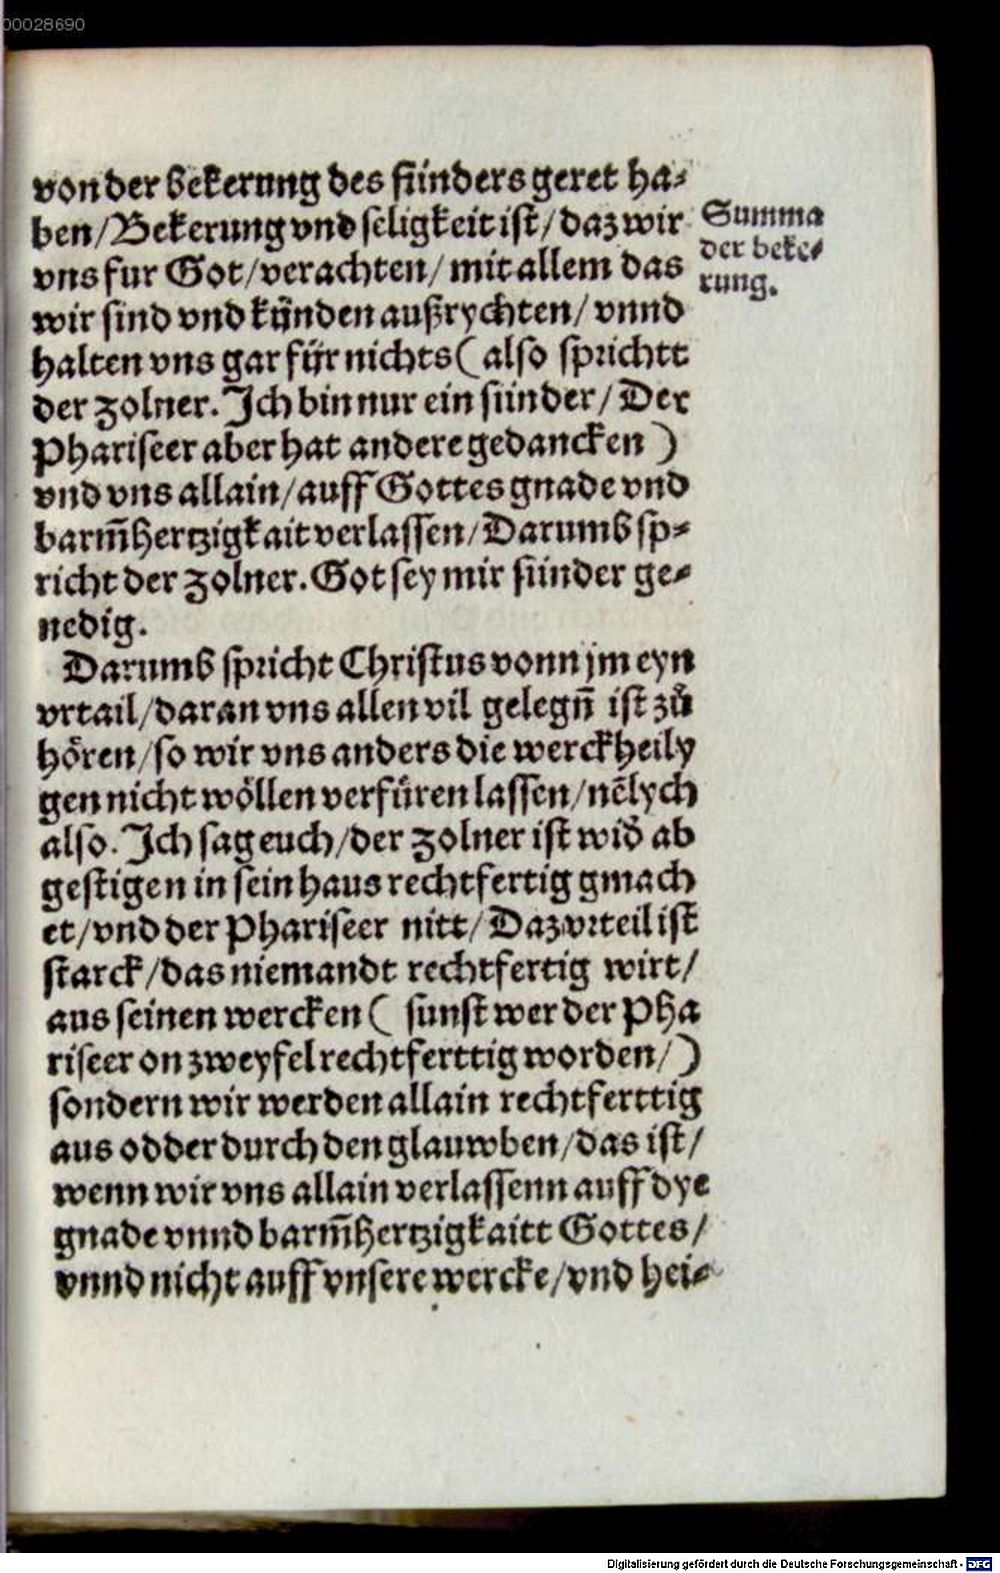 00028690
von der bekerung des sünders geret ha⸗
ben/Bekerung vnd seligkeit ist/daz wir
vns fur Got/verachten/mit allem das
wir sind vnd künden außrychten/ vnnd
halten vns gar für nichts( also sprichtt
der zolner. Ich bin nur ein sünder/Der
Phariseer aber hat andere gedancken )
vnd vns allain/auff Gottes gnade vnd
barm̄hertzigkait verlassen/Darumb sp⸗
richt der zolner. Got sey mir sünder ge⸗
nedig.
Summa
der beke⸗
rung.
Darumb spricht Christus vonn jm eyn
vrtail/daran vns allen vil gelegn̄ ist zů
hören/so wir vns anders die werckheily
gen nicht wöllen verfüren lassen/nēlych
also. Ich sag euch/der zolner ist wid̄ ab
gestigen in sein haus rechtfertig gmach
et/vnd der Phariseer nitt/Daz vrteil ist
starck/das niemandt rechtfertig wirt/
aus seinen wercken( sunst wer der Pha
riseer on zweyfel rechtferttig worden/)
sondern wir werden allain rechtferttig
aus odder durch den glauwben/das ist/
wenn wir vns allain verlassenn auff dye
gnade vnnd barm̄hertzigkaitt Gottes/
vnnd nicht auff vnsere wercke/vnd hei⸗
Digitalisierung gefördert durch die Deutsche Forschungsgemeinschaft - DFG